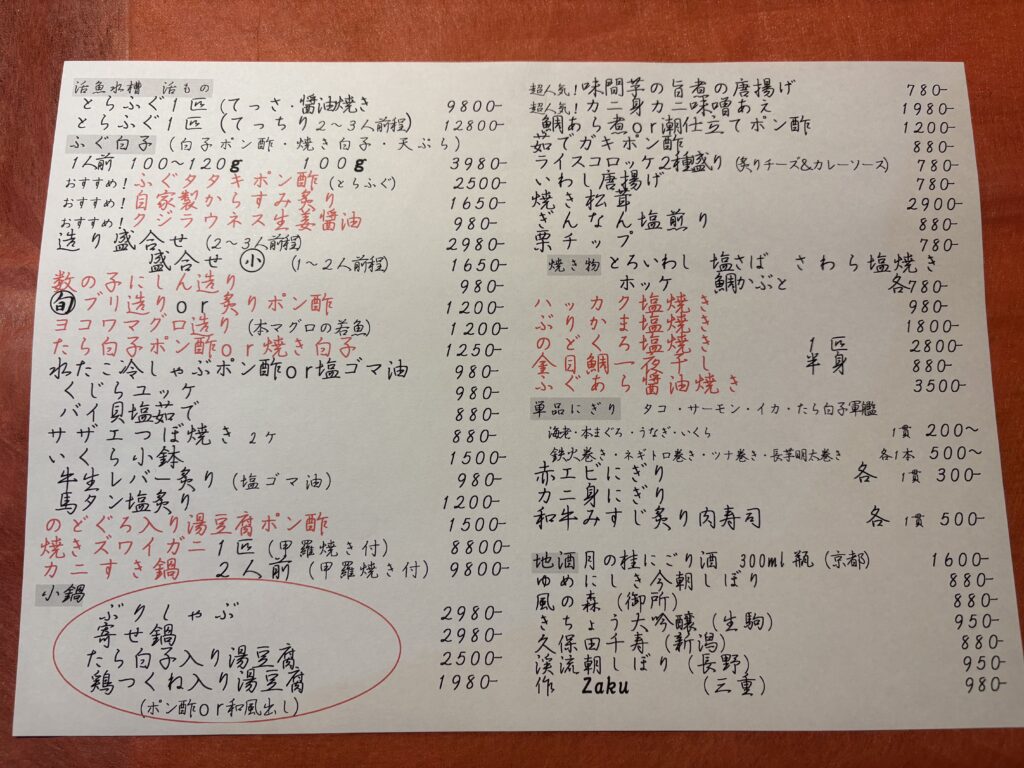 活魚水槽 活もの
とらふぐ1匹 (てっさ・醬油焼き 9800-
とらふぐ1匹 (てっちり2~3人前程) 12800-
ふぐ白子 (白子ポン酢・焼き白子・天ぷら)
1人前 100~120g 100g 3980-
おすすめ!ふぐタタキポン酢 (とらふぐ) 2500-
おすすめ!自家製からすみ炙り 1650-
おすすめ!クジラウネス生姜醬油 980-
造り盛合せ (2~3人前程) 2980-
盛合せ 小 (1~2人前程) 1650-
数の子にしん造り 980-
旬ブリ造りor炙りポン酢 1200-
ヨコワマグロ造り (本マグロの若魚) 1200-
たら白子ポン酢or焼き白子 1250-
水たこ冷しゃぶポン酢or塩ゴマ油 980-
くじらユッケ 980-
バイ貝塩茹で 880-
サザエつぼ焼き 2ケ 880-
いくら小鉢 1500-
牛生レバー炙り (塩ゴマ油) 980-
馬タン塩炙り 1200-
のどぐろ入り湯豆腐ポン酢 1500-
焼きズワイガニ 1匹 (甲羅焼き付) 8800-
カニすき鍋 2人前 (甲羅焼き付) 9800-
小鍋
ぶりしゃぶ 2980-
寄せ鍋 2980-
たら白子入り湯豆腐 2500-
鶏つくね入り湯豆腐 1980-
(ポン酢or和風出し)
超人気!味間芋の旨煮の唐揚げ 780-
超人気!カニ身カニ味噌あえ 1980-
鯛あら煮or潮仕立てポン酢 1200-
茹でガキポン酢 880-
ライスコロッケ2種盛り (炙りチーズ&カレーソース) 780-
いわし唐揚げ 780-
焼き松茸 2900-
ぎんなん塩煎り 880-
栗チップ 780-
焼き物 とろいわし 塩さば さわら塩焼き
ホッケ 鯛かぶと 各780-
ハッカク塩焼き 980-
ぶりかま塩焼き 1800-
のどくろ塩焼き 1匹 2800-
金目鯛一夜干し 半身 880-
ふぐあら醬油焼き 3500-
単品にぎり タコ・サーモン・イカ・たら白子軍艦
海老・本まぐろ・うなぎ・いくら 1貫 200~
鉄火巻き・ネギトロ巻き・ツナ巻き・長芋明太巻き 各1本 500~
赤エビにぎり 各 1貫 300-
カニ身にぎり
和牛みすじ炙り肉寿司 各 1貫 500-
地酒 月の桂にごり酒 300ml瓶 (京都) 1600-
ゆめにしき今朝しぼり 880-
風の森 (御所) 880-
きちょう大吟醸 (生駒) 950-
久保田千寿 (新潟) 880-
渓流朝しぼり (長野) 950-
作 Zaku (三重) 980-